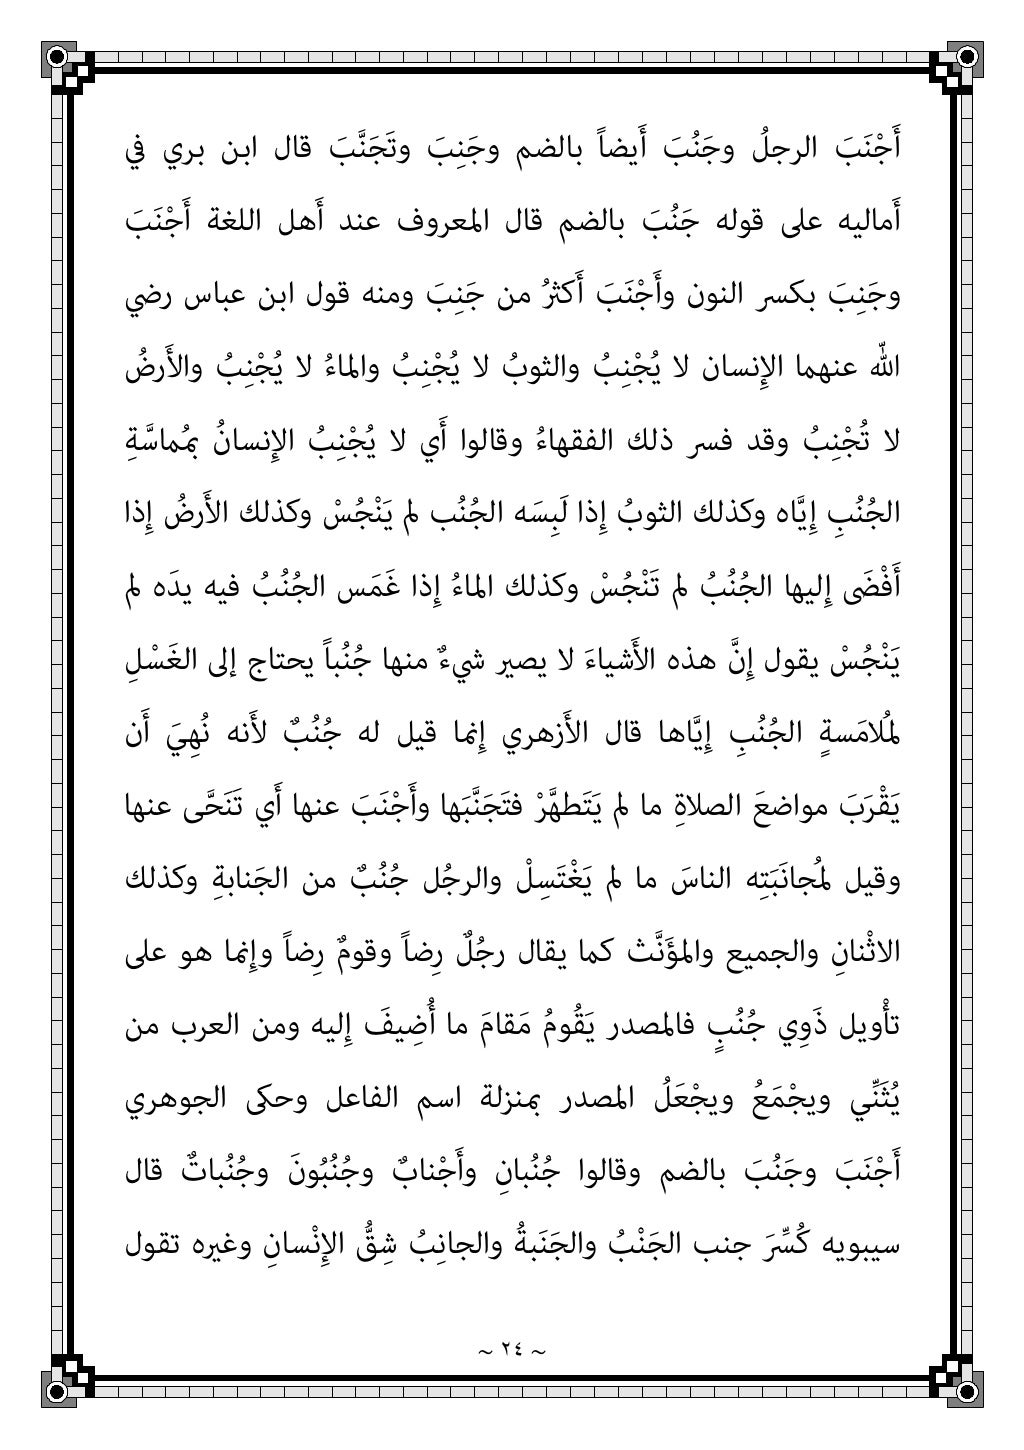 أَجْنَبَ الرجلُ وجَنُبَ أَيضاً بالضم وجَنِبَ وتَجَنَّبَ قال ابن بري في
أَماليه على قوله جَنُبَ بالضم قال المعروف عند أَهل اللغة أَجْنَبَ
وجَنِبَ بكسر النون وأَجْنَبَ أَكثرُ من جَنِبَ ومنه قول ابن عباس رضي
اللّه عنهما الإِنسان لا يُجْنِبُ والثوبُ لا يُجْنِبُ والماءُ لا يُجْنِبُ والأَرضُ
لا تُجْنِبُ وقد فسر ذلك الفقهاءُ وقالوا أَي لا يُجْنِبُ الإِنسانُ بمُماسَّةِ
الجُنُبِ إِيَّاه وكذلك الثوبُ إِذا لَبِسَه الجُنُب لم يَنْجُسْ وكذلك الأَرضُ إِذا
أَفْضَى إِليها الجُنُبُ لم تَنْجُسْ وكذلك الماءُ إِذا غَمَس الجُنُبُ فيه يدَه لم
يَنْجُسْ يقول إِنَّ هذه الأَشياءَ لا يصير شيءٌ منها جُنُباً يحتاج إلى الغَسْلِ
لمُلامَسةٍ الجُنُبِ إِيَّاها قال الأَزهري إِنما قيل له جُنُبٌ لأَنه نُهِيَ أَن
يَقْرَبَ مواضعَ الصلاةِ ما لم يَتَطهَّرْ فتَجَنَّبَها وأَجْنَبَ عنها أَي تَنَحَّى عنها
وقيل لمُجانَبَتِه الناسَ ما لم يَغْتَسِلْ والرجُل جُنُبٌ من الجَنابةِ وكذلك
الاثْنانِ والجميع والمؤَنَّث كما يقال رجُلٌ رِضاً وقومٌ رِضاً وإِنما هو على
تأْويل ذَوِي جُنُبٍ فالمصدر يَقُومُ مَقامَ ما أُضِيفَ إِليه ومن العرب من
يُثَنِّي ويجْمَعُ ويجْعَلُ المصدر بمنزلة اسم الفاعل وحكى الجوهري
أَجْنَبَ وجَنُبَ بالضم وقالوا جُنُبانِ وأَجْنابٌ وجُنُبُونَ وجُنُباتٌ قال
سيبويه كُسِّرَ جنب الجَنْبُ والجَنَبةُ والجانِبُ شِقُّ الإِنْسانِ وغيره تقول
~ ٢٤ ~